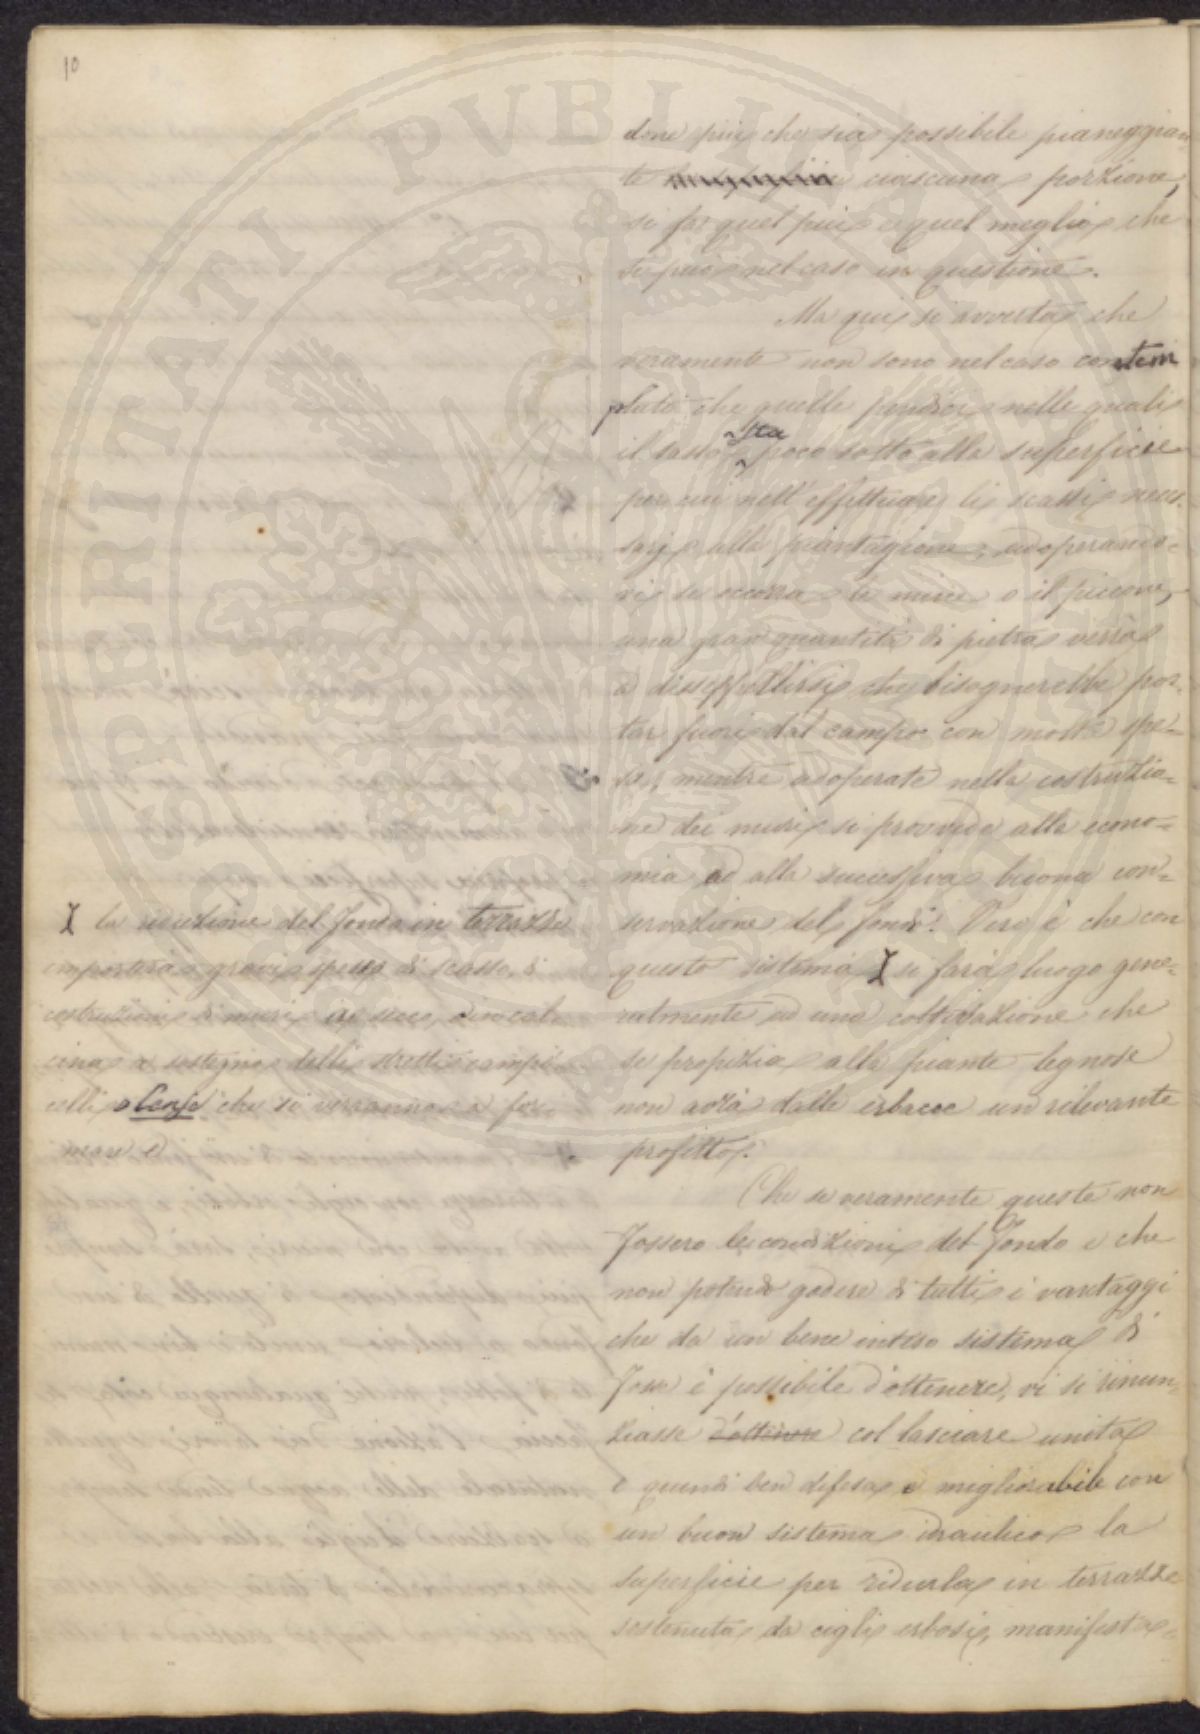 10
done più che sia possibile pianeggian
te ciascuna porzione,
si fa quel più e quel meglio che
si può nel caso in questione.
Ma qui si avverta che
veramente non sono nel caso contem
plato che quelle pendici nelle quali
il sasso sta poco sotto alla superficie
per cui nell'effettuare li scassi neces
sarj alla piantagione, adoperando-
vi se occorra le mine o il piccone,
una gran quantità di pietra verrà
a disseppellirsi, che bisognerebbe por-
tar fuori dal campo con molta spe-
sa, mentre adoperate nella costruzio-
ne dei muri si provvede alla econo-
mia ed alla successiva buona con-
servazione del fondo. Vero è che con
questo sistema si farà luogo gene-
ralmente ad una coltivazione che
se propizia alle piante legnose
non avrà dalle erbacee un rilevante
profitto.
Che se veramente queste non
fossero le condizioni del fondo e che
non potendo godere di tutti i vantaggi
che da un bene inteso sistema di
fosse è possibile d'ottenere, vi si rinun-
ziasse d'ottenere col lasciare unita
e quindi ben difesa e migliorabile con
un buon sistema idraulico la
superficie per ridurla in terrazze
sostenuta da cigli erbosi, manifesta-
la riduzione del fondo in terrazze
importerà gravi spese di scasso, di
costruzioni di muri a secco, o in cal-
cina a sostegno delli stretti campi-
celli o lenze che si verranno a for-
mare e